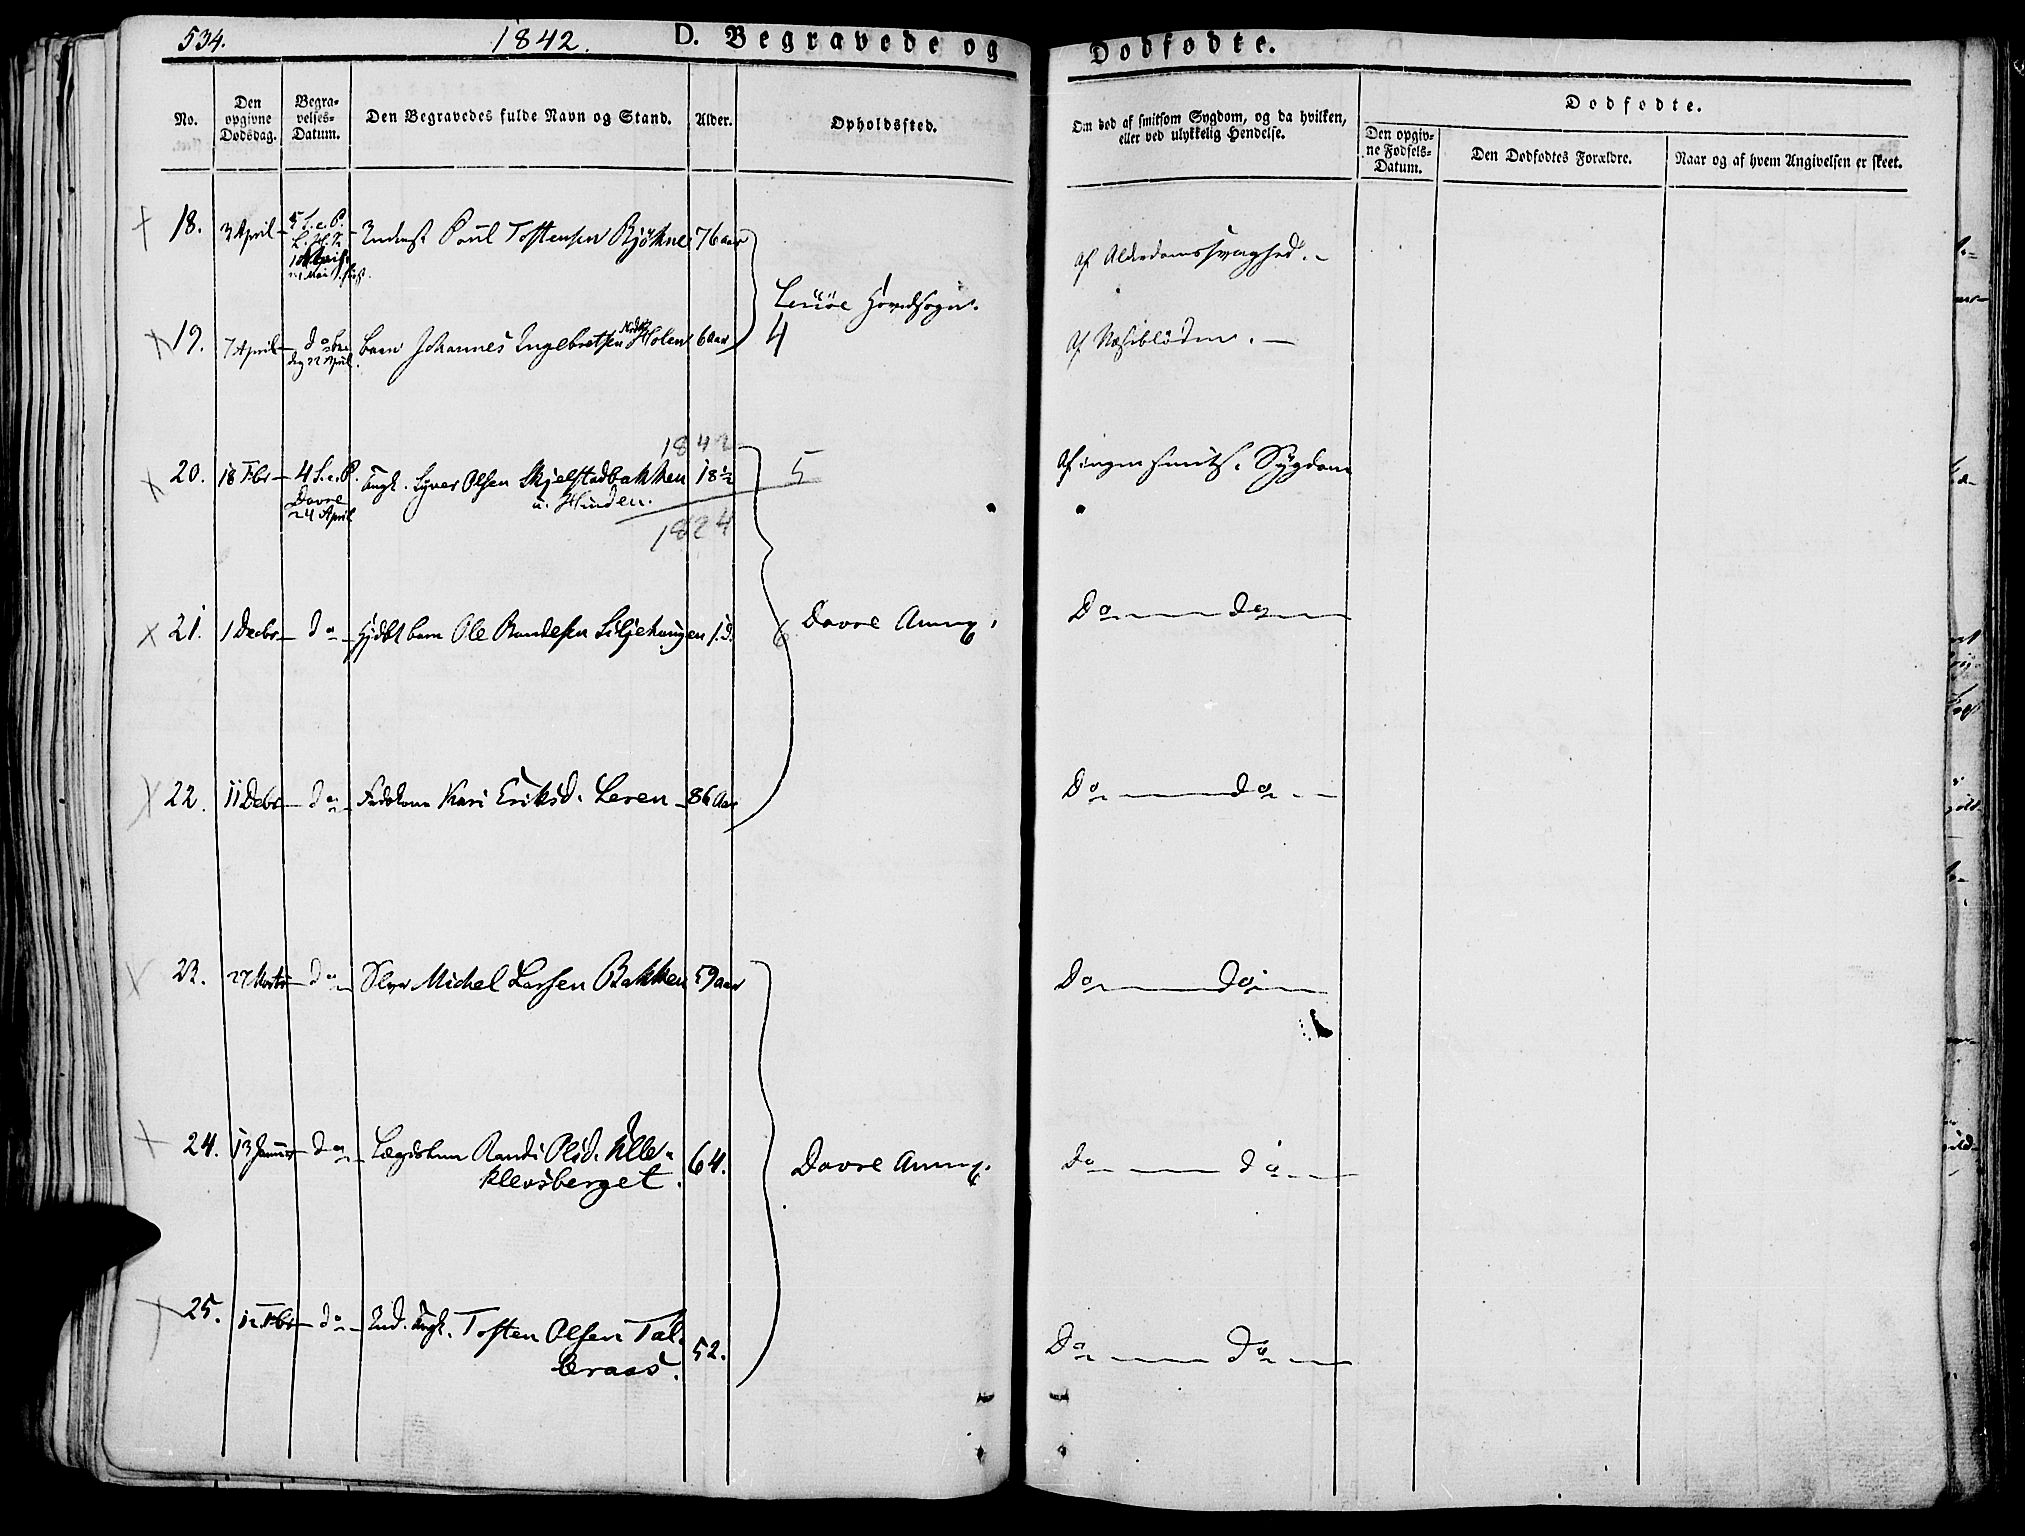 534. 1842. D. Begravede og Dødfødte.
No. Den opgivne Dødsdag. Begravelses-Datum. Den Begravedes fulde Navn og Stand. Alder. Opholdssted. Om død af smitsom Sygdom, og da hvilken, eller ved ulykkelig Hendelse. Dødfødte.
Den opgivne Fødsels-Datum. Den Dødfødtes Forældre. Naar og af hvem Angivelsen er skeet.
18. 3 April Poul Tostensen Bjøkne 76 aar af Alderdomssvaghed.
Lesiöe Hovedsogn.
19. 7 April do 22 April barn Johannes Ingebretsen Holen 6 aar 4 af
1842
20. 18 Fbr 4 S. e. P. Dovre 24 April Ungk. Syver Olsen Skjelstadbakken 18½ 5 Af ingen smits. Sygdom
u. Hinden.
1824
21. 1 Decbr do barn Ole 1 d. 6 Dovre Annex. Do do
22. 11 Decbr do Kari Eriksd. Leren 86 Aar Do do
23. 27 Marts do Michel Larsen Bakken 59 aar Do do
24. 13 Januar do Randi Olsd. Ulle- 64. Dovre Annex. Do do
klevsberget.
25. 12 Fbr do Ind. Ungk. Tosten Olsen Tal- 52. Do do
leraas.